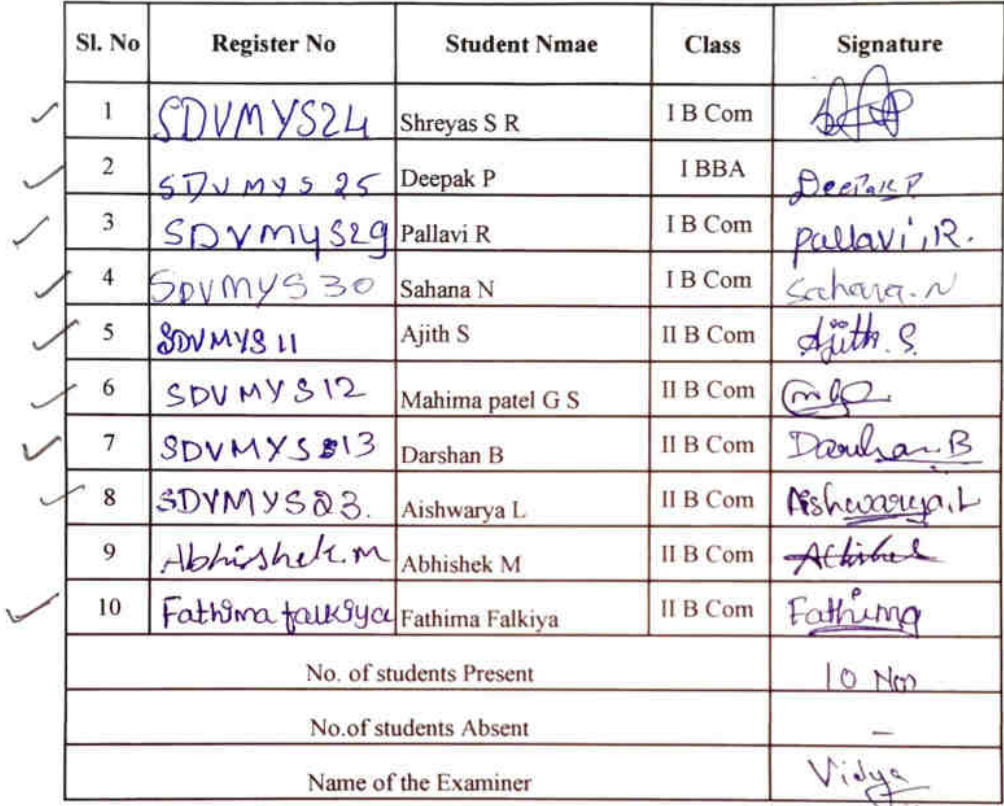 Sl. No Register No Student Nmae Class Signature
1 SDVMYS24 Shreyas S R I B Com
2 SDVMYS 25 Deepak P I BBA Deepak P
3 SDVMYS29 Pallavi R I B Com Pallavi, R.
4 SDVMYS30 Sahana N I B Com Sahana. N
5 SDVMYS 11 Ajith S II B Com Ajith. S.
6 SDVMYS12 Mahima patel G S II B Com
7 SDVMYS 13 Darshan B II B Com Darshan B
8 SDVMYS23. Aishwarya L II B Com Aishwarya. L
9 Abhishek. M Abhishek M II B Com
10 Fathima falkiya Fathima Falkiya II B Com Fathima
No. of students Present 10
No.of students Absent –
Name of the Examiner Vidya